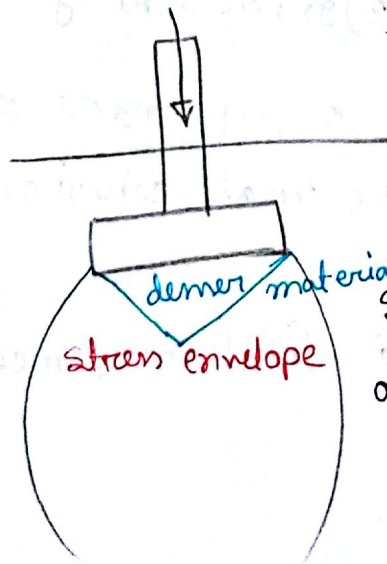 denser materia
stress envelope